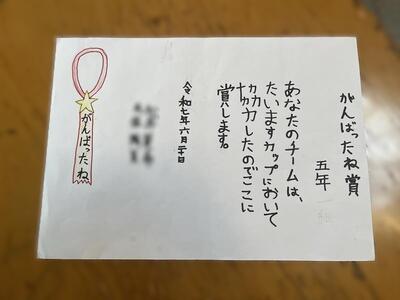 がんばったね賞
五年 一組
あなたのチームは、
たいますカップにおいて
協力したのでここに
賞します。
令和七年六月二十日
がんばったね